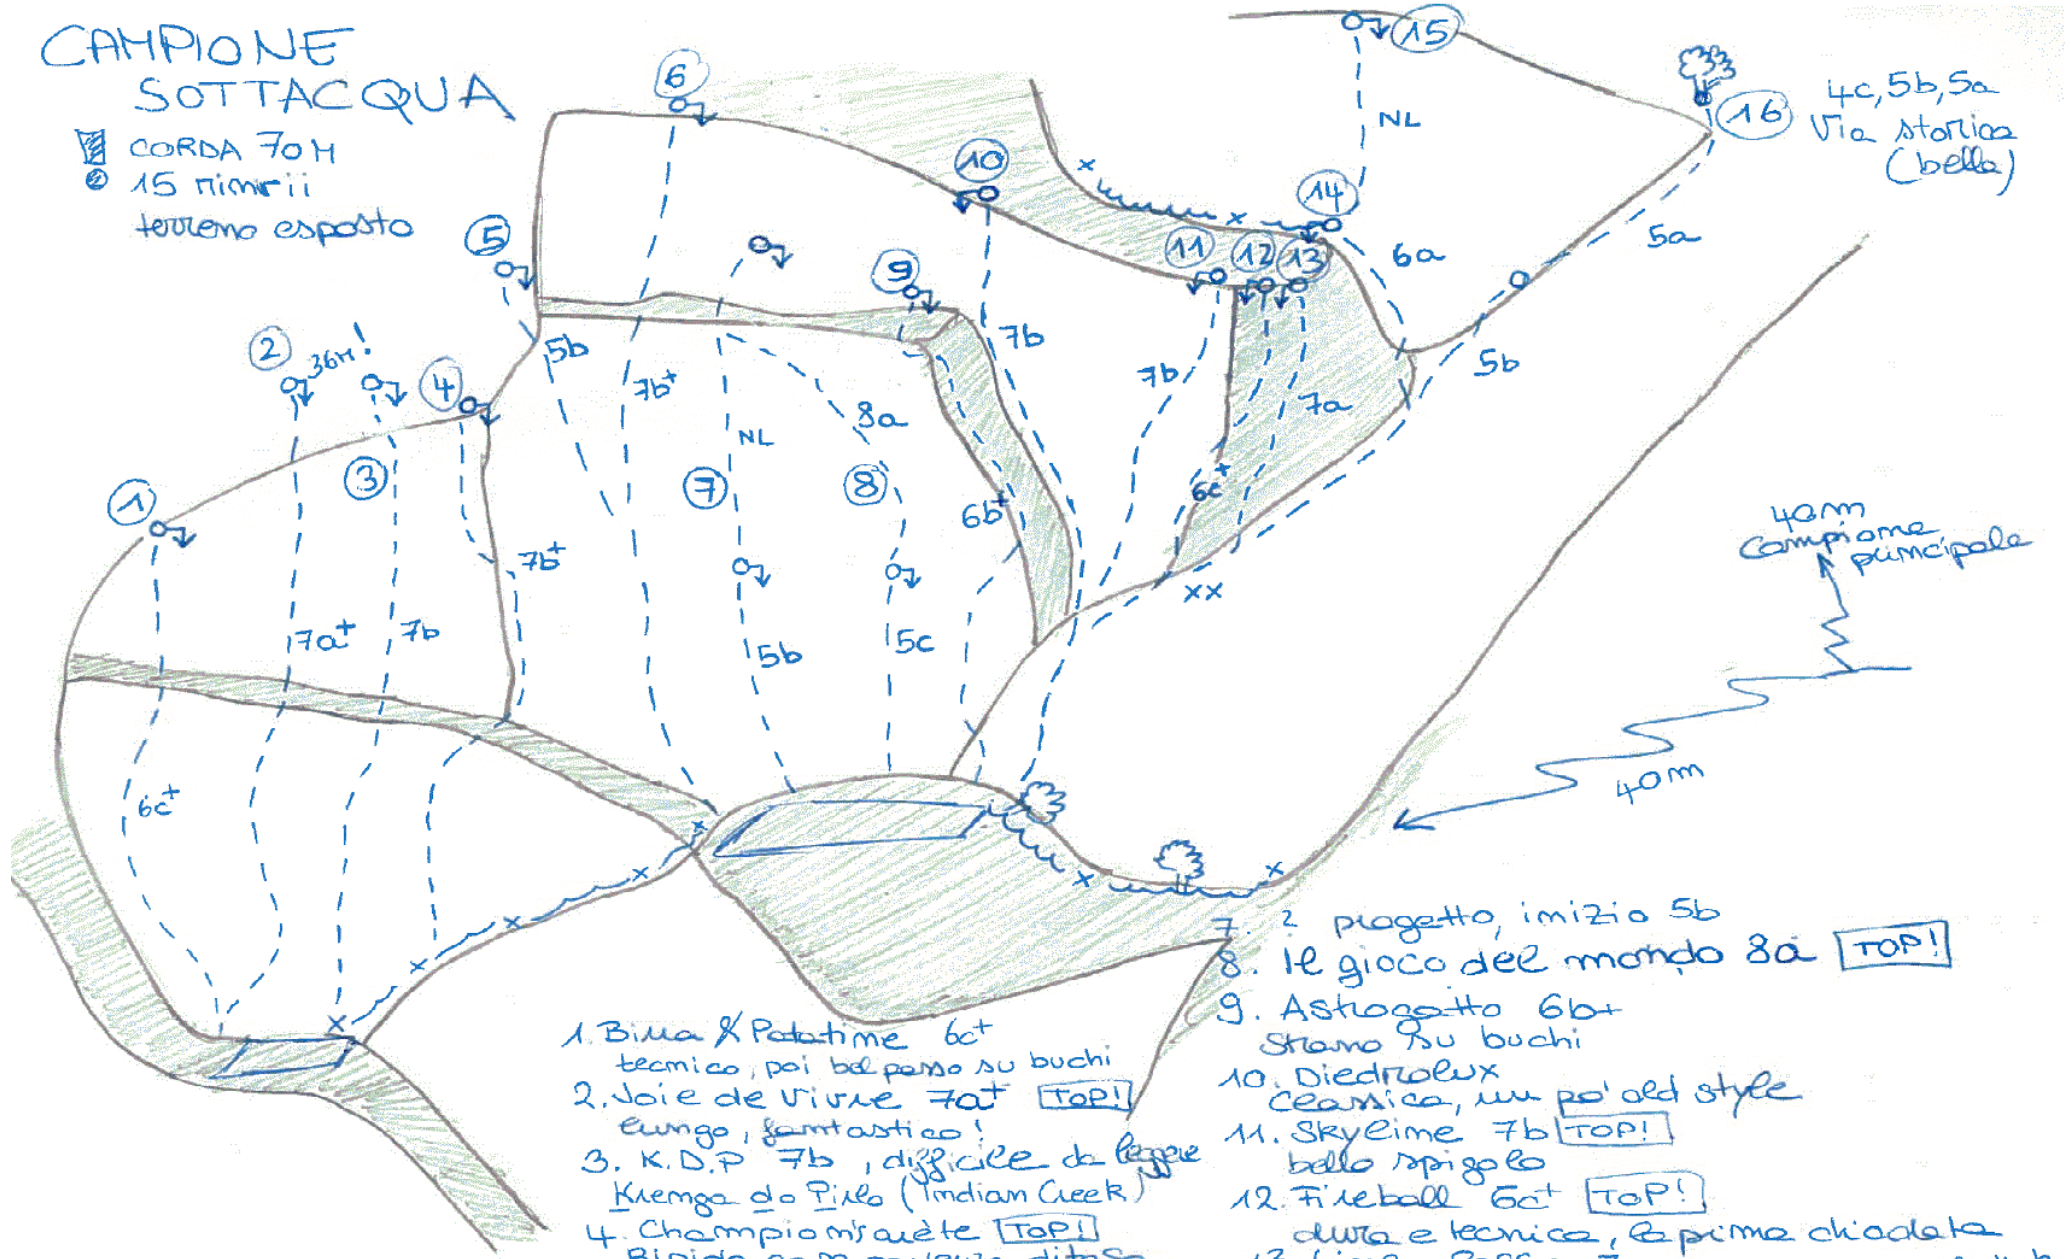 CAMPIONE
SOTTACQUA
CORDA 70M
15 rinvii
terreno esposto
6
15
NL
16
4c, 5b, 5a
Via storica
(bella)
10
14
5
11
12
13
6a
5a
9
2
36M!
4
5b
7b+
7b
7b
7a
5b
8a
NL
3
7
8
1
6b+
6c+
7b+
XX
40m
Campione
principale
7a+
7b
5b
5c
6c+
40m
1. Birra & Patatine 6c+
tecnico, poi bel passo su buchi
2. Joie de Vivre 7a+ TOP!
lungo, fantastico!
3. K.D.P 7b, difficile da leggere
Krenga do Pirlo (Indian Creek)
4. Champion's arète TOP!
7. ? progetto, inizio 5b
8. Il gioco del mondo 8a TOP!
9. Astrogatto 6b+
strano su buchi
10. Diedrolux
classica, un po' old style
11. Skyline 7b TOP!
bello spigolo
12. Fireball 6c+ TOP!
dura e tecnica, la prima chiodata